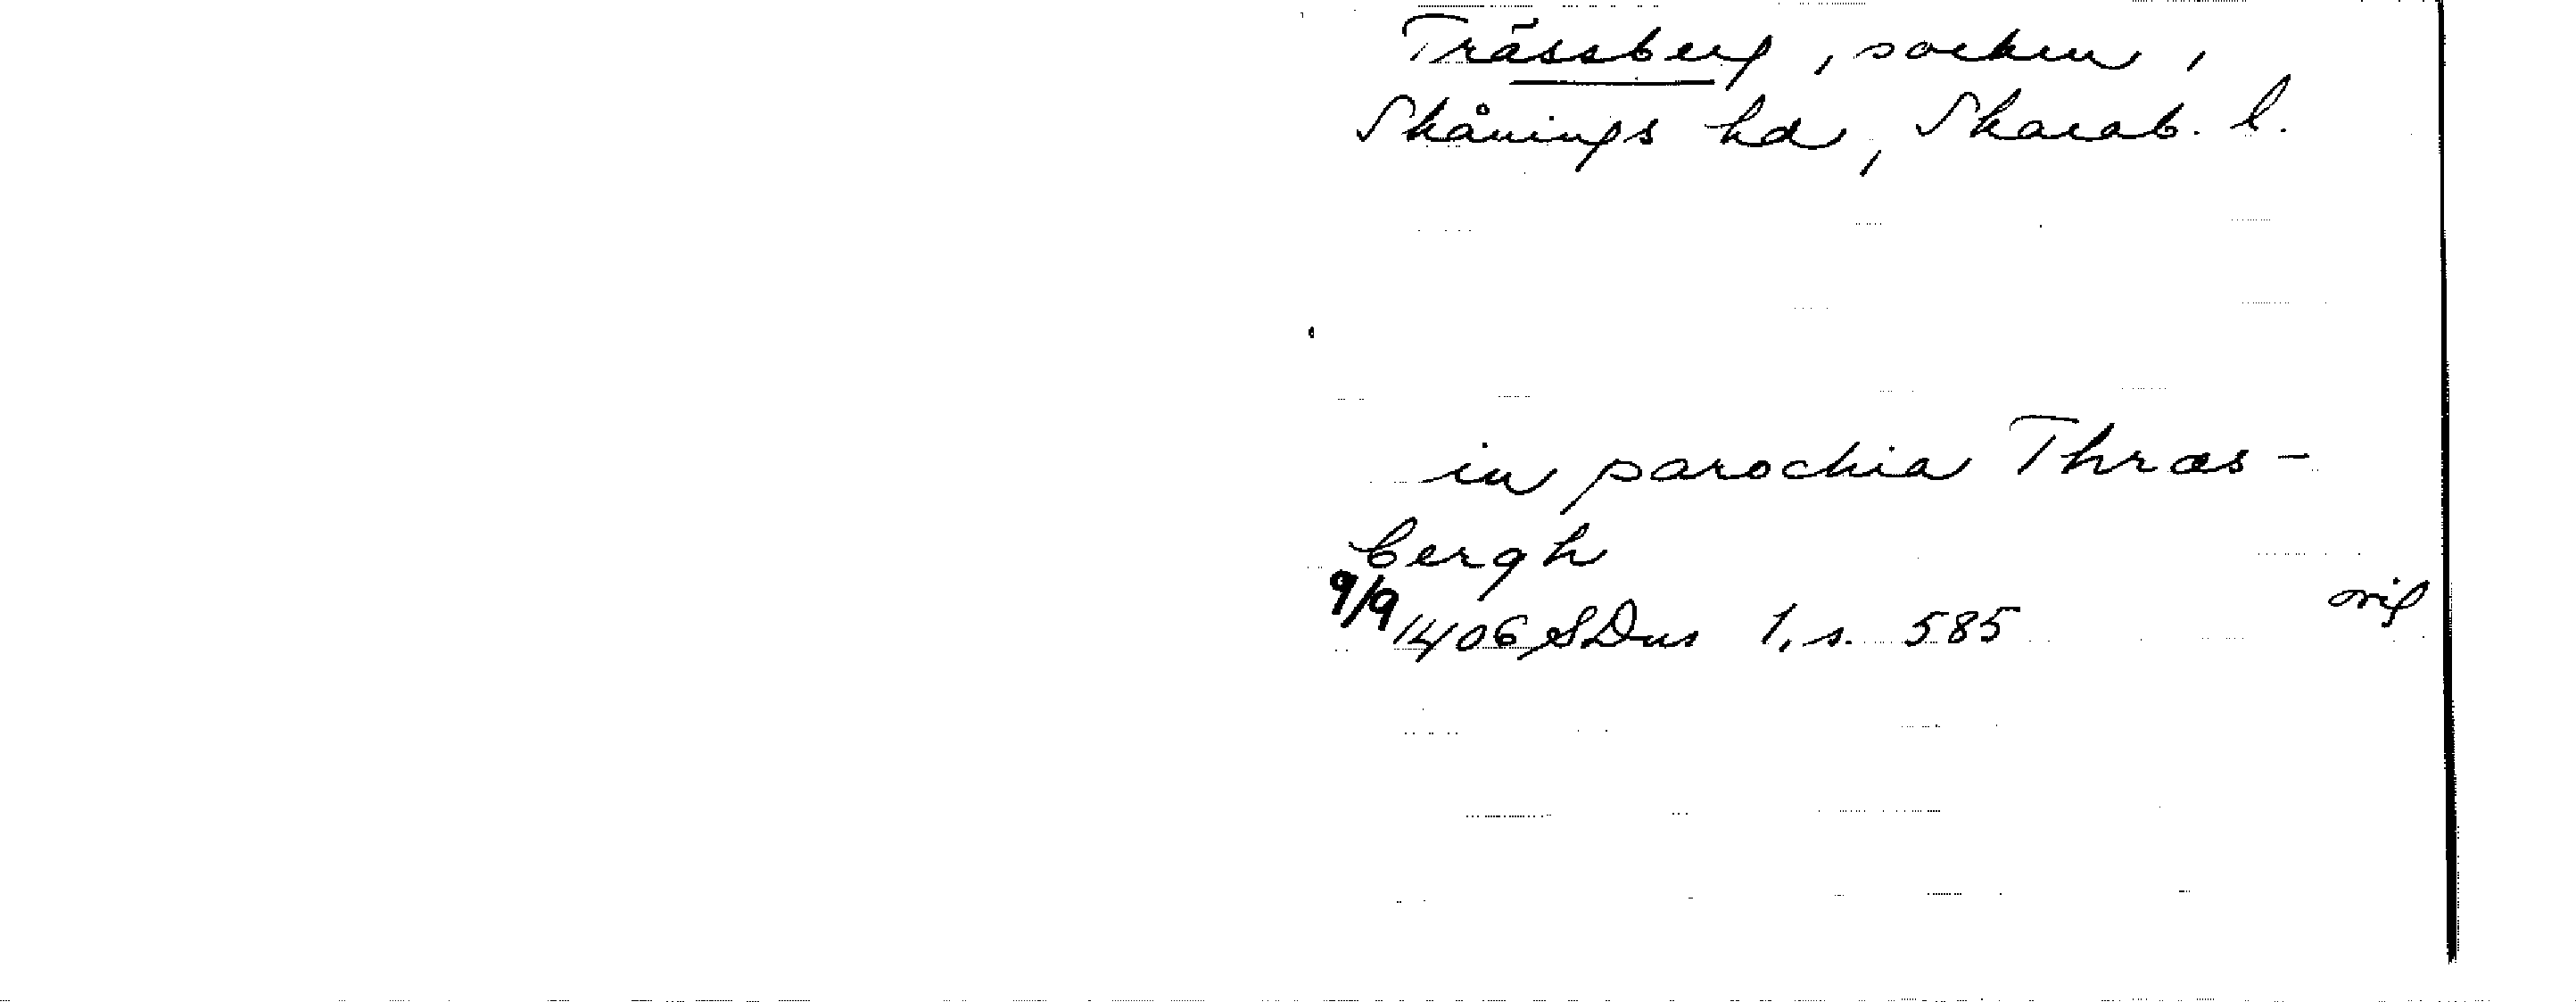 Trässberg, socken,
Skånings hd, Skarab. l.
in parochia Thræs-
bergh
9/9 1406 SDns 1, s. 585 orig